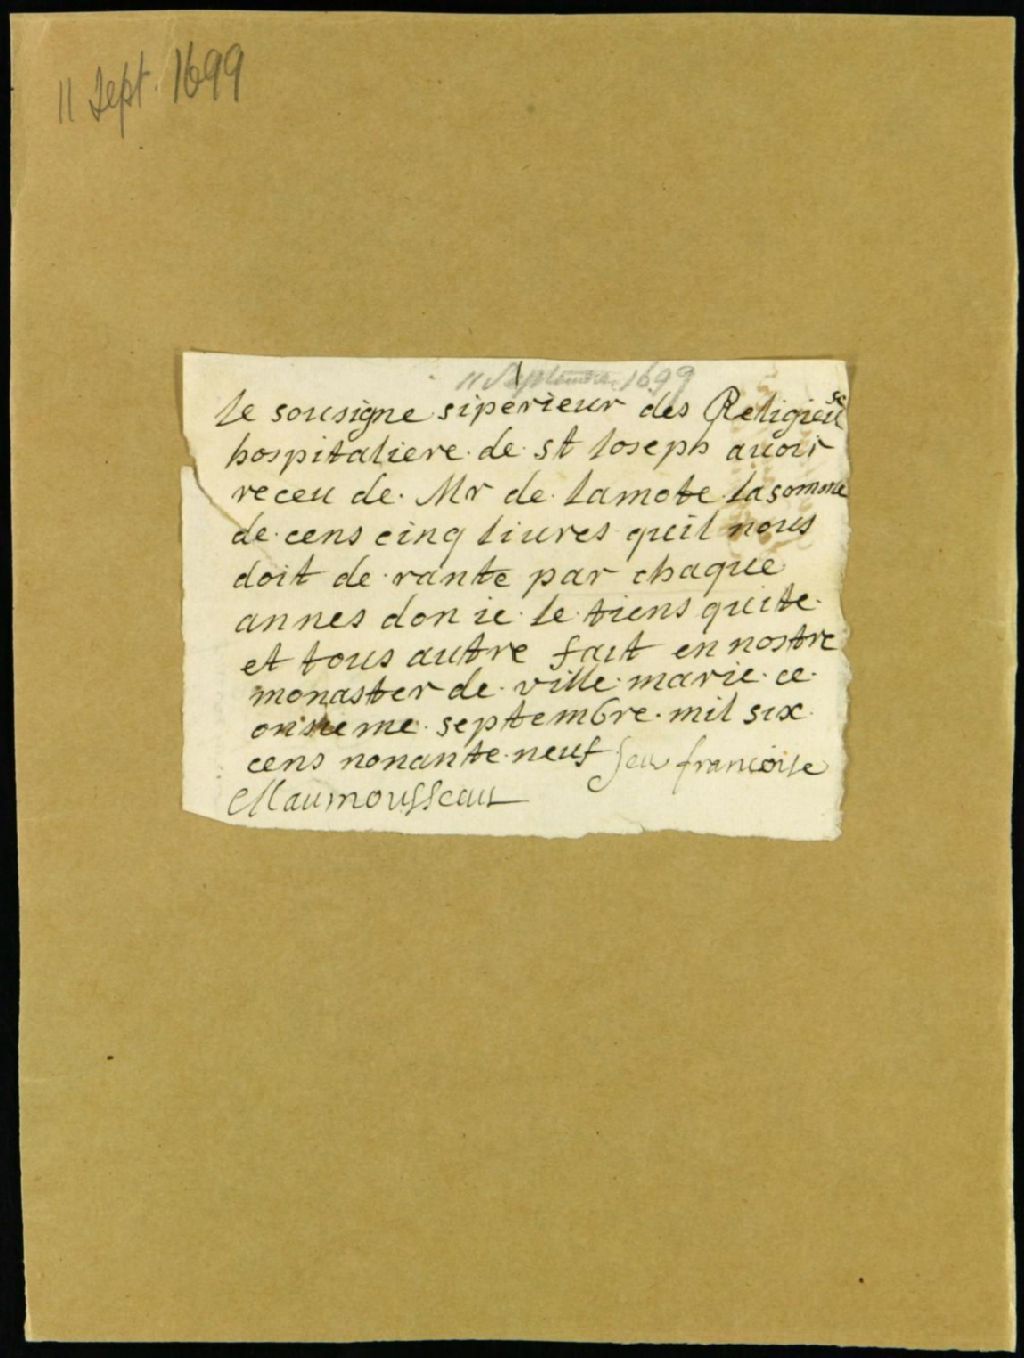 11 Sept. 1699
11 Septembre 1699
Ie sousigne siperieur des Religieuse
hospitaliere de st Ioseph auoir
receu de Mr de lamote la somme
de cens cinq liures queil nous
doit de rante par chaque
annes don ie le tiens quite
et tous autre fait en nostre
monaster de ville marie ce
onsieme septembre mil six
cens nonante neuf Seu francoise
Maumousseau